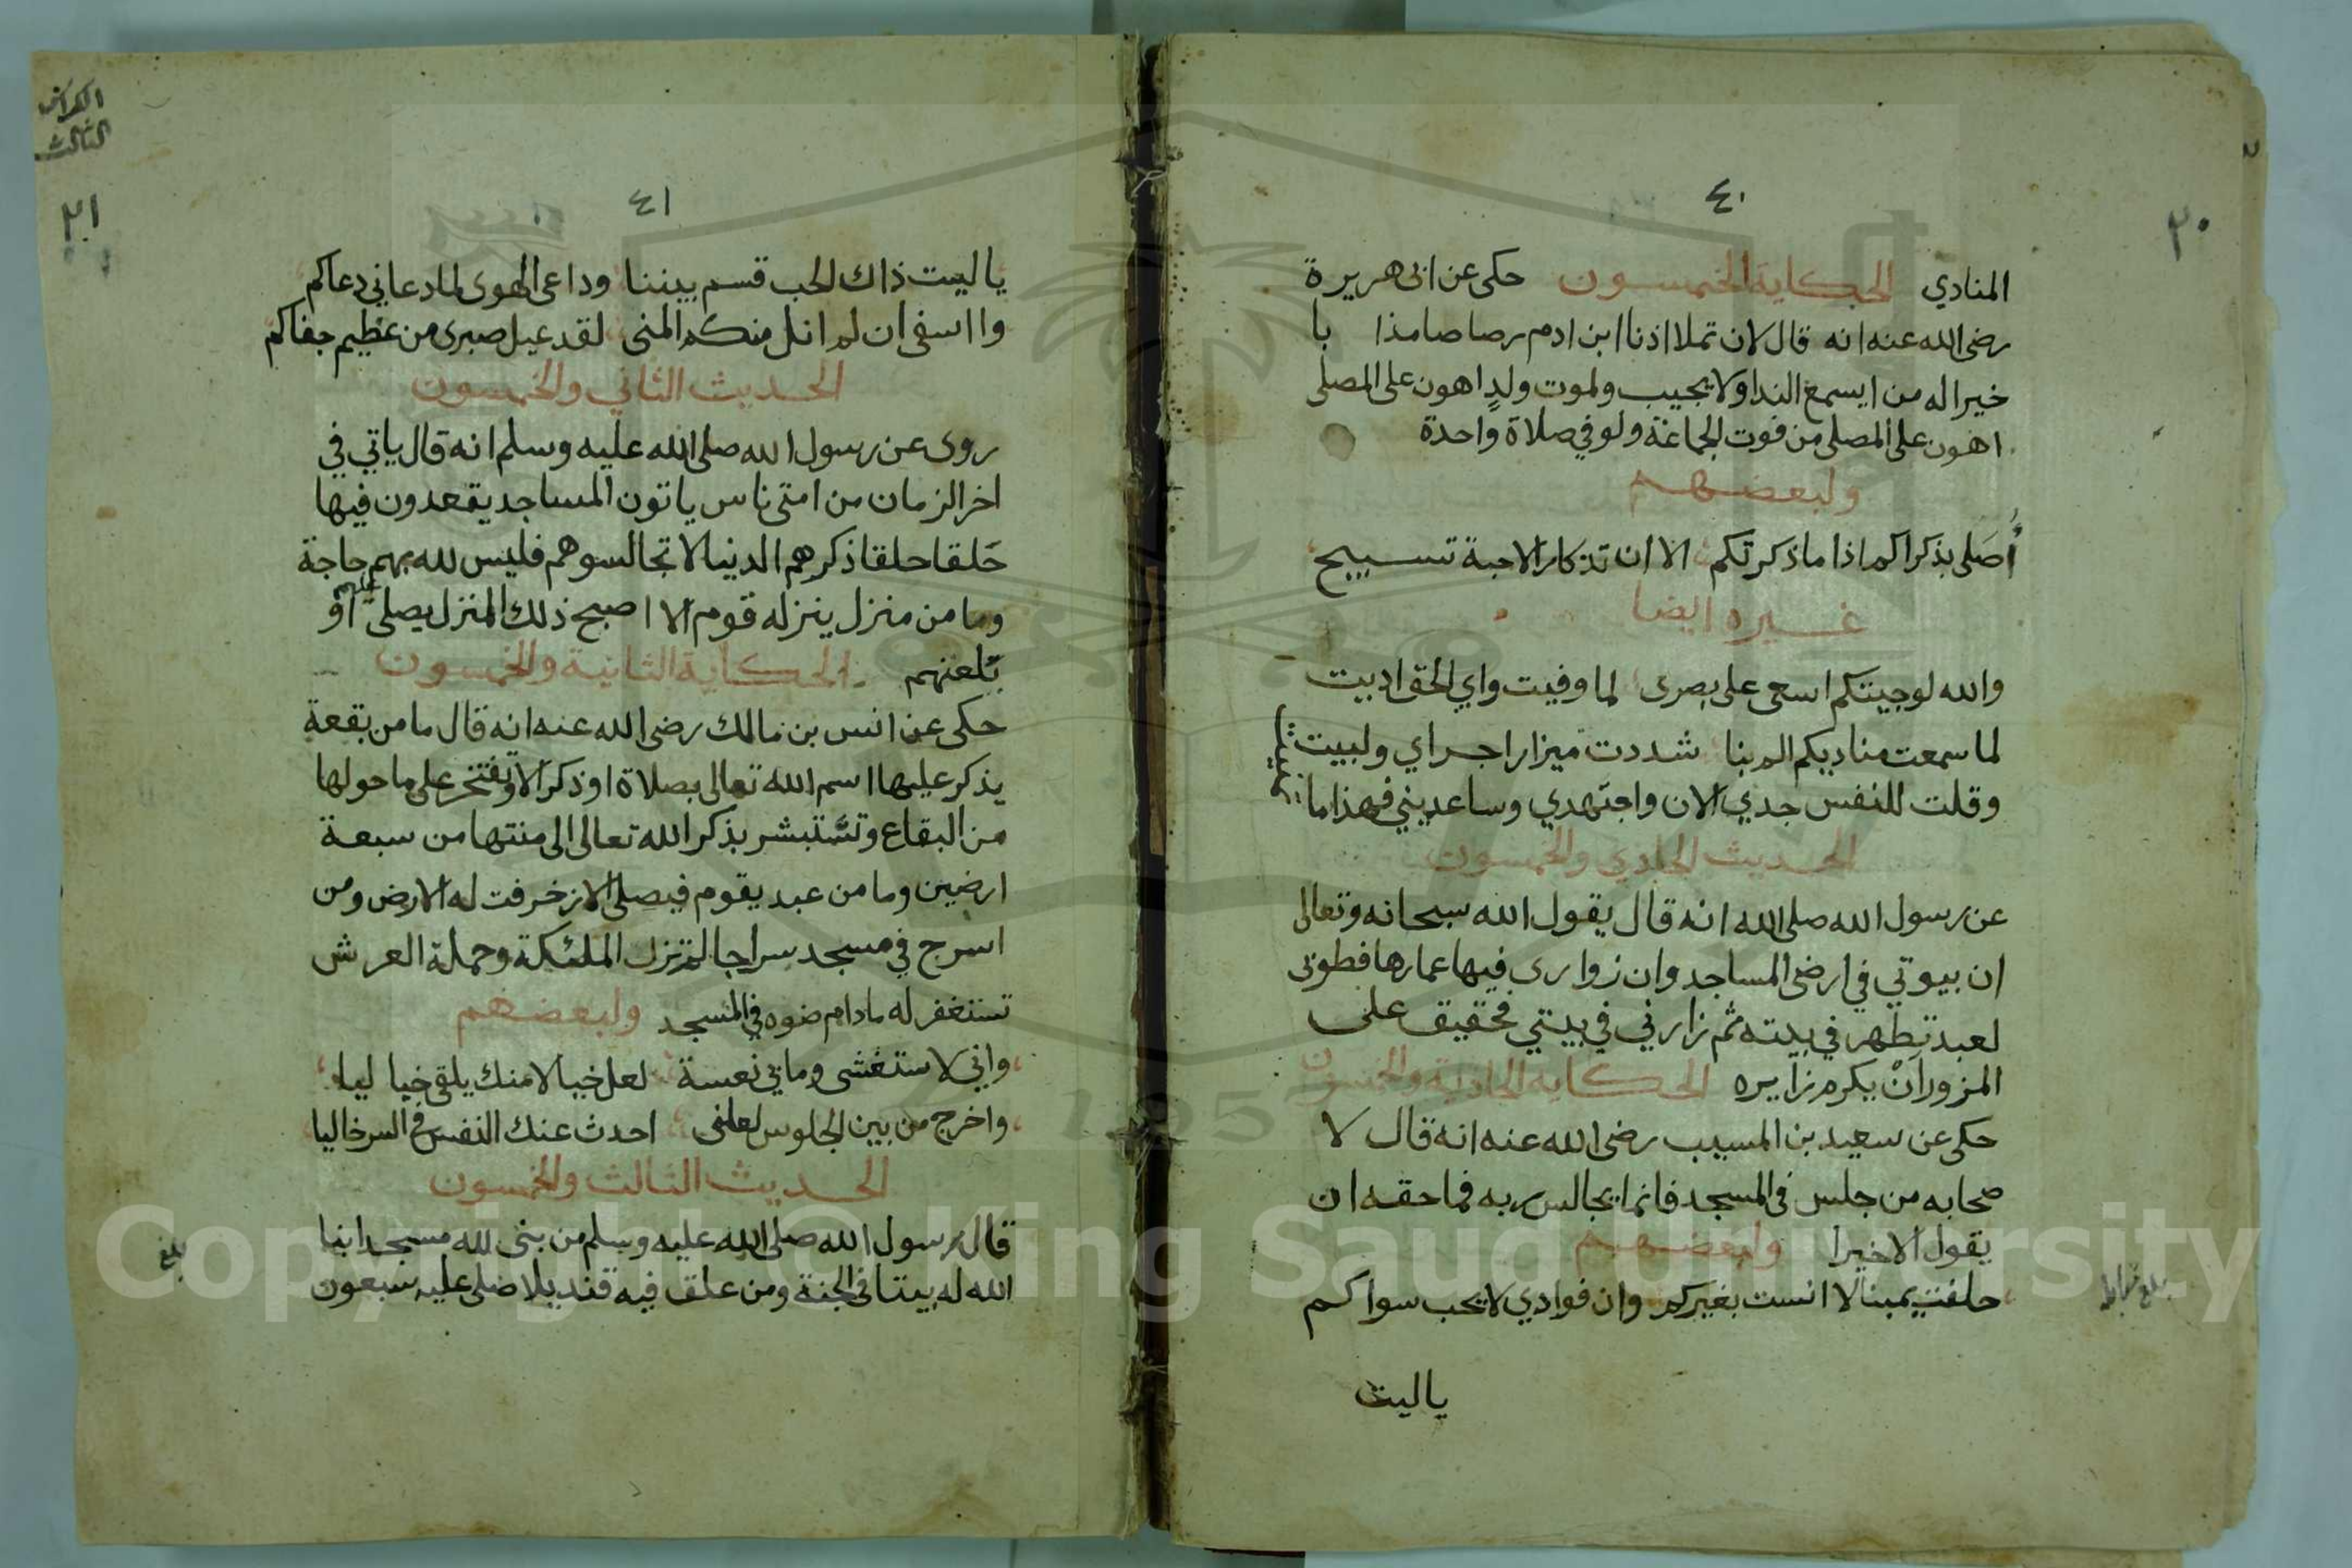 ٤٠
٢٠
المنادي الحكاية الخمسون حكى عن ابى هريرة
رضى الله عنه انه قال لان تملا اذنا ابن ادم رصاصا مذابا
خيرا له من ايسمع الندا ولا يجيب ولموت ولدٍ اهون على المصلى
اهون على المصلى من فوت الجماعة ولو في صلاة واحدة
ولبعضهم
أُصَلى بذكراكم اذا ما ذكرتكم الا ان تذكار الاحبة تسبيح
غيره ايضا
والله لو جيتكم اسعى على بصرى لما وفيت واي الحق اديت
لما سمعت مناديكم الم بنا شددت ميزار اجراي ولبيت
وقلت للنفس جدي الان واجتهدي وساعديني فهذا ما تمنيت
الحديث الحادي والخمسون
عن رسول الله صلى الله انه قال يقول الله سبحانه وتعالى
ان بيوتي في ارضى المساجد وان زوارى فيها عمارها فطوبى
لعبد تطهر في بيته ثم زارني في بيتي فحقيق على
المزور اَنْ يكرم زايره الحكايه الحادية والخمسون
حكى عن سعيد بن المسيب رضى الله عنه انه قال لا
صحابه من جلس فى المسجد فانما يجالس ربه فما حقه ان
يقول الا خيرا ولبعضهم
حلفت يمينا لا انست بغيركم وان فوادي لا يحب سواكم
ياليت
بلغ
الكراس
الثالث
٢١
٤١
ياليت ذاك الحب قسم بيننا وداعى الهوى لما دعاني دعاكم
وا اسفى ان لم انل منكم المنى لقد عيل صبرى من عظيم جفاكم
الحديث الثاني والخمسون
روى عن رسول الله صلى الله عليه وسلم انه قال ياتي في
اخر الزمان من امتى ناس ياتون المساجد يقعدون فيها
حَلقا حلقا ذكرهم الدنيا لا تجالسوهم فليس لله بهم حاجة
وما من منزل ينزله قوم الا اصبح ذلك المنزل يصلى عليهم او
يلعنهم الحكاية الثانية والخمسون
حكى عن انس بن مالك رضى الله عنه انه قال ما من بقعة
يذكر عليها اسم الله تعالى بصلاة او ذكر الا وتفتخر على ما حولها
من البقاع وتستبشر بذكر الله تعالى الى منتها من سبعة
ارضين وما من عبد يقوم فيصلى الا زخرفت له الارض ومن
اسرج في مسجد سراجا لم تزل الملئكة وحملة العرش
تستغفر له مادام ضوه في المسجد ولبعضهم
واني لاستغشى وما بي نعسة لعل خيالا منك يلقى خيا ليا
واخرج من بين الجلوس لعلنى احدث عنك النفس في السر خاليا
الحديث الثالث والخمسون
قال رسول الله صلى الله عليه وسلم من بنى لله مسجدا بنا
الله له بيتا فى الجنة ومن علق فيه قنديلا صلى عليه سبعون
بلغ
Copyright © King Saud University
1957